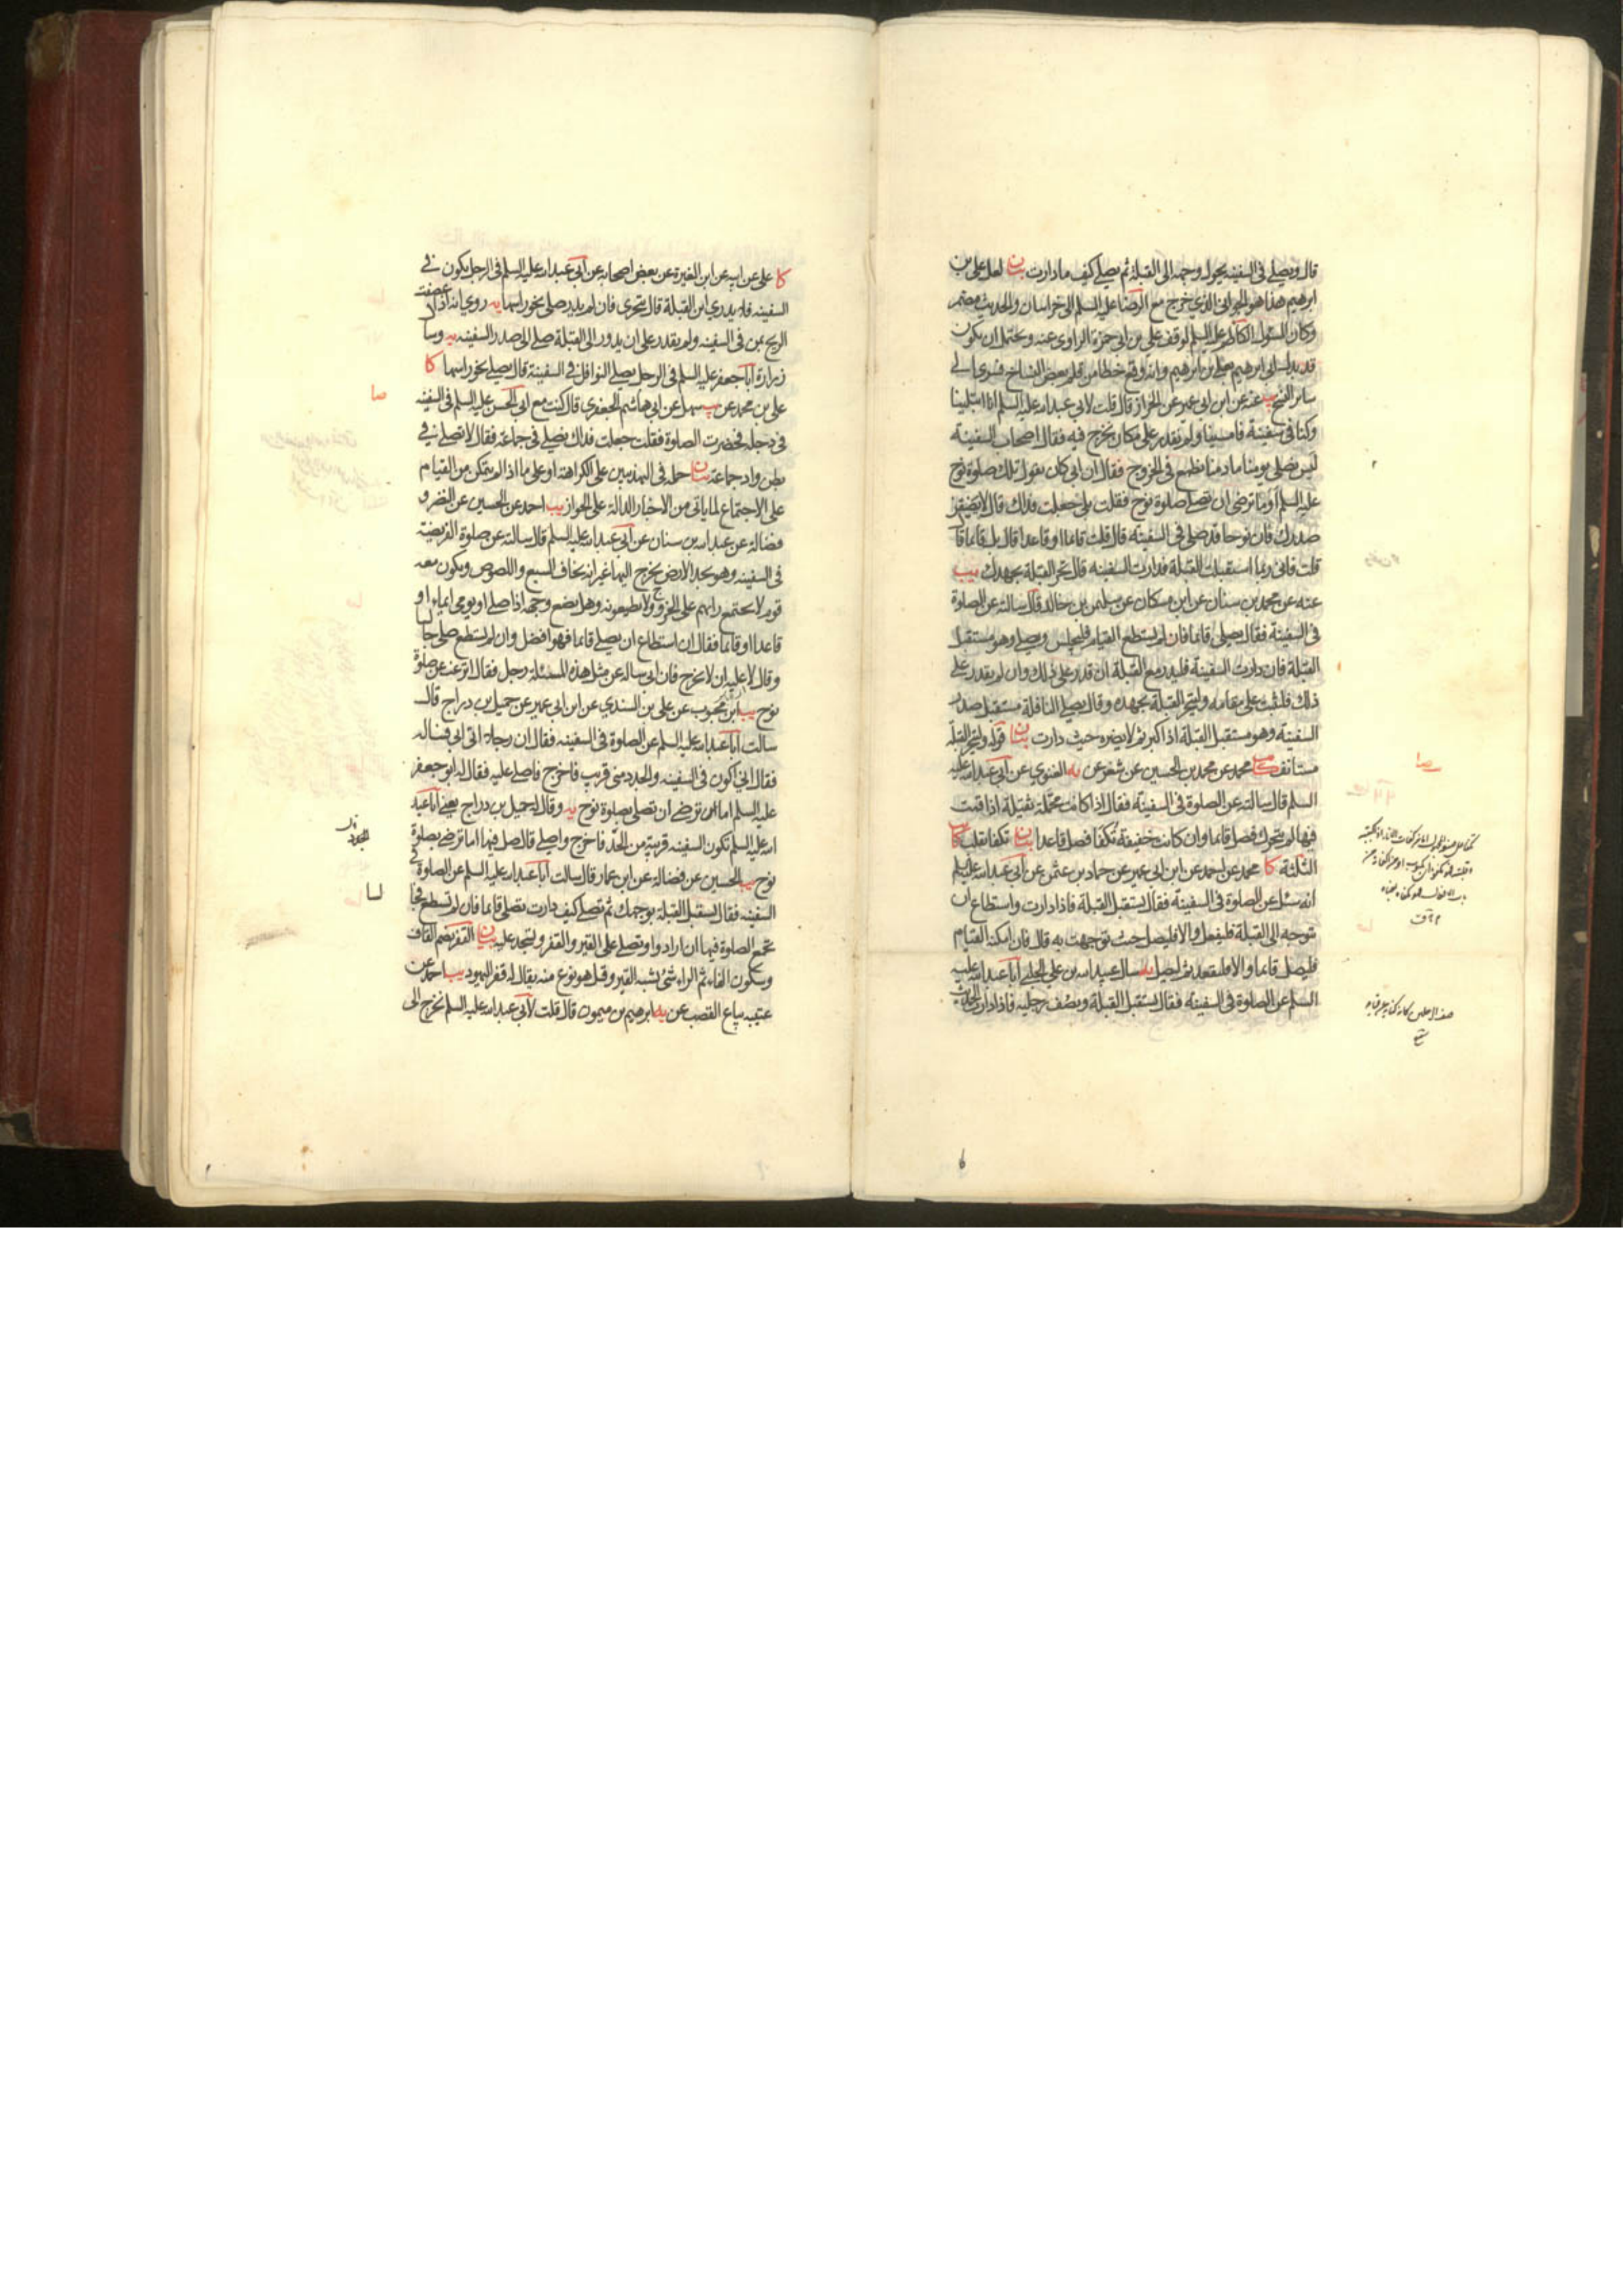 قال ويصلي في السفينة يحول وجهه الى القبلة ثم يصلي كيف ما دارت بيان لعل علي بن
ابرهيم هذا هو الجواني الذي خرج مع الرضا عليه السلم الى خراسان والحديث مضمر
وكان المسئول الكاظم عليه السلم لوقف علي بن ابي حمزة الراوي عنه ويحتمل ان يكون
ابرهيم وانه وقع خطا من قلم بعض النساخ فسرى الى
ساير النسخ يب عنه عن ابن ابي عمير عن الخزاز قال قلت لابي عبد الله عليه السلم انا ابتلينا
وكنا في سفينة فامسينا ولم نقدر على مكان نخرج فيه فقال اصحاب السفينة
ليس نصلي يومنا ما دمنا نطمع في الخروج فقال ان ابي كان يقول تلك صلوة نوح
عليه السلم اوما ترضى ان تصلي صلوة نوح فقلت بلى جعلت فداك قال لا يضيقن
صدرك فان نوحا قد صلى في السفينة قال قلت قائما او قاعدا قال بل قائما قال
قلت فاني ربما استقبلت القبلة فدارت السفينة قال تحر القبلة بجهدك يب
عنه عن محمد بن سنان عن ابن مسكان عن سليمن بن خالد قال سالته عن الصلوة
في السفينة فقال يصلي قائما فان لم يستطع القيام فليجلس ويصلي وهو مستقبل
القبلة فان دارت السفينة فليدر مع القبلة ان قدر على ذلك وان لم يقدر على
ذلك فليثبت على مقامه وليتحر القبلة بجهده وقال يصلي النافلة مستقبل صدر
السفينة وهو مستقبل القبلة اذا كبر ثم لا يضره حيث دارت بيان قوله وليتحر القبلة
مستانف محمد عن محمد بن الحسين عن شعر عن يه الغنوي عن ابي عبد الله عليه
السلم قال سالته عن الصلوة في السفينة فقال اذا كانت محملة ثقيلة اذا قمت
فيها لم تتحرك فصل قائما وان كانت خفيفة تكفا فصل قاعدا بيان تكفا تقلب كا
الثلثة كا محمد عن احمد عن ابن ابي عمير عن حماد بن عثمن عن ابي عبد الله عليه السلم
انه سئل عن الصلوة في السفينة فقال يستقبل القبلة فاذا دارت واستطاع ان
يتوجه الى القبلة فليفعل والا فليصل حيث توجهت به قال فان امكنه القيام
فليصل قائما والا فليقعد ثم ليصل يه سال عبيد الله بن علي الحلبي ابا عبد الله عليه
السلم عن الصلوة في السفينة فقال يستقبل القبلة ويصف رجليه فاذا دارت الحديث
كا علي عن ابيه عن ابن المغيرة عن بعض اصحابه عن ابي عبد الله عليه السلم في الرجل يكون في
السفينة فلا يدري اين القبلة قال يتحرى فان لم يدر صلى نحو راسها يه روي انه اذا عصفت
الريح بمن في السفينة ولم يقدر على ان يدور الى القبلة صلى الى صدر السفينة يه وسال
زرارة ابا جعفر عليه السلم في الرجل يصلي النوافل في السفينة قال يصلي نحو راسها كا
علي بن محمد عن يب سهل عن ابي هاشم الجعفري قال كنت مع ابي الحسن عليه السلم في السفينة
في دجلة فحضرت الصلوة فقلت جعلت فداك نصلي في جماعة فقال لا تصلي في
بطن واد جماعة بيان حمله في التهذيبين على الكراهة او على ما اذا لم يتمكن من القيام
على الاجتماع لما ياتي من الاخبار الدالة على الجواز يب احمد عن الحسين عن النضر و
فضالة عن عبد الله بن سنان عن ابي عبد الله عليه السلم قال سالته عن صلوة الفريضة
في السفينة وهو يجد الارض يخرج اليها غير انه يخاف السبع واللصوص ويكون معه
قوم لا يجتمع رايهم على الخروج ولا يطيعونه وهل يضع وجهه اذا صلى او يومي ايماء او
قاعدا او قائما فقال ان استطاع ان يصلي قائما فهو افضل وان لم يستطع صلى جالسا
وقال لا عليه ان لا يخرج فان ابي ساله عن مثل هذه المسئلة رجل فقال اترغب عن صلوة
نوح يب ابن محبوب عن علي بن السندي عن ابن ابي عمير عن جميل بن دراج قال
سالت ابا عبد الله عليه السلم عن الصلوة في السفينة فقال ان رجلا اتى ابي فساله
فقال اني اكون في السفينة والجدد مني قريب فاخرج فاصلي عليه فقال له ابو جعفر
عليه السلم اما ترضى ان تصلي بصلوة نوح يه وقال له جميل بن دراج يعني ابا عبد
الله عليه السلم تكون السفينة قريبة من الجد فاخرج واصلي قال صل فيها اما ترضى بصلوة
نوح يب الحسين عن فضالة عن ابن عمار قال سالت ابا عبد الله عليه السلم عن الصلوة في
السفينة فقال تستقبل القبلة بوجهك ثم تصلي كيف دارت تصلي قائما فان لم تستطع فجالسا
تجمع الصلوة فيها ان ارادوا وتصلي على القير والقفر وتسجد عليه بيان القفر بضم القاف
وسكون الفاء ثم الراء شئ يشبه القير وقيل هو نوع منه يقال له قفر اليهود يب احمد عن
عتيبة بياع القصب عن يه ابرهيم بن ميمون قال قلت لابي عبد الله عليه السلم نخرج الى